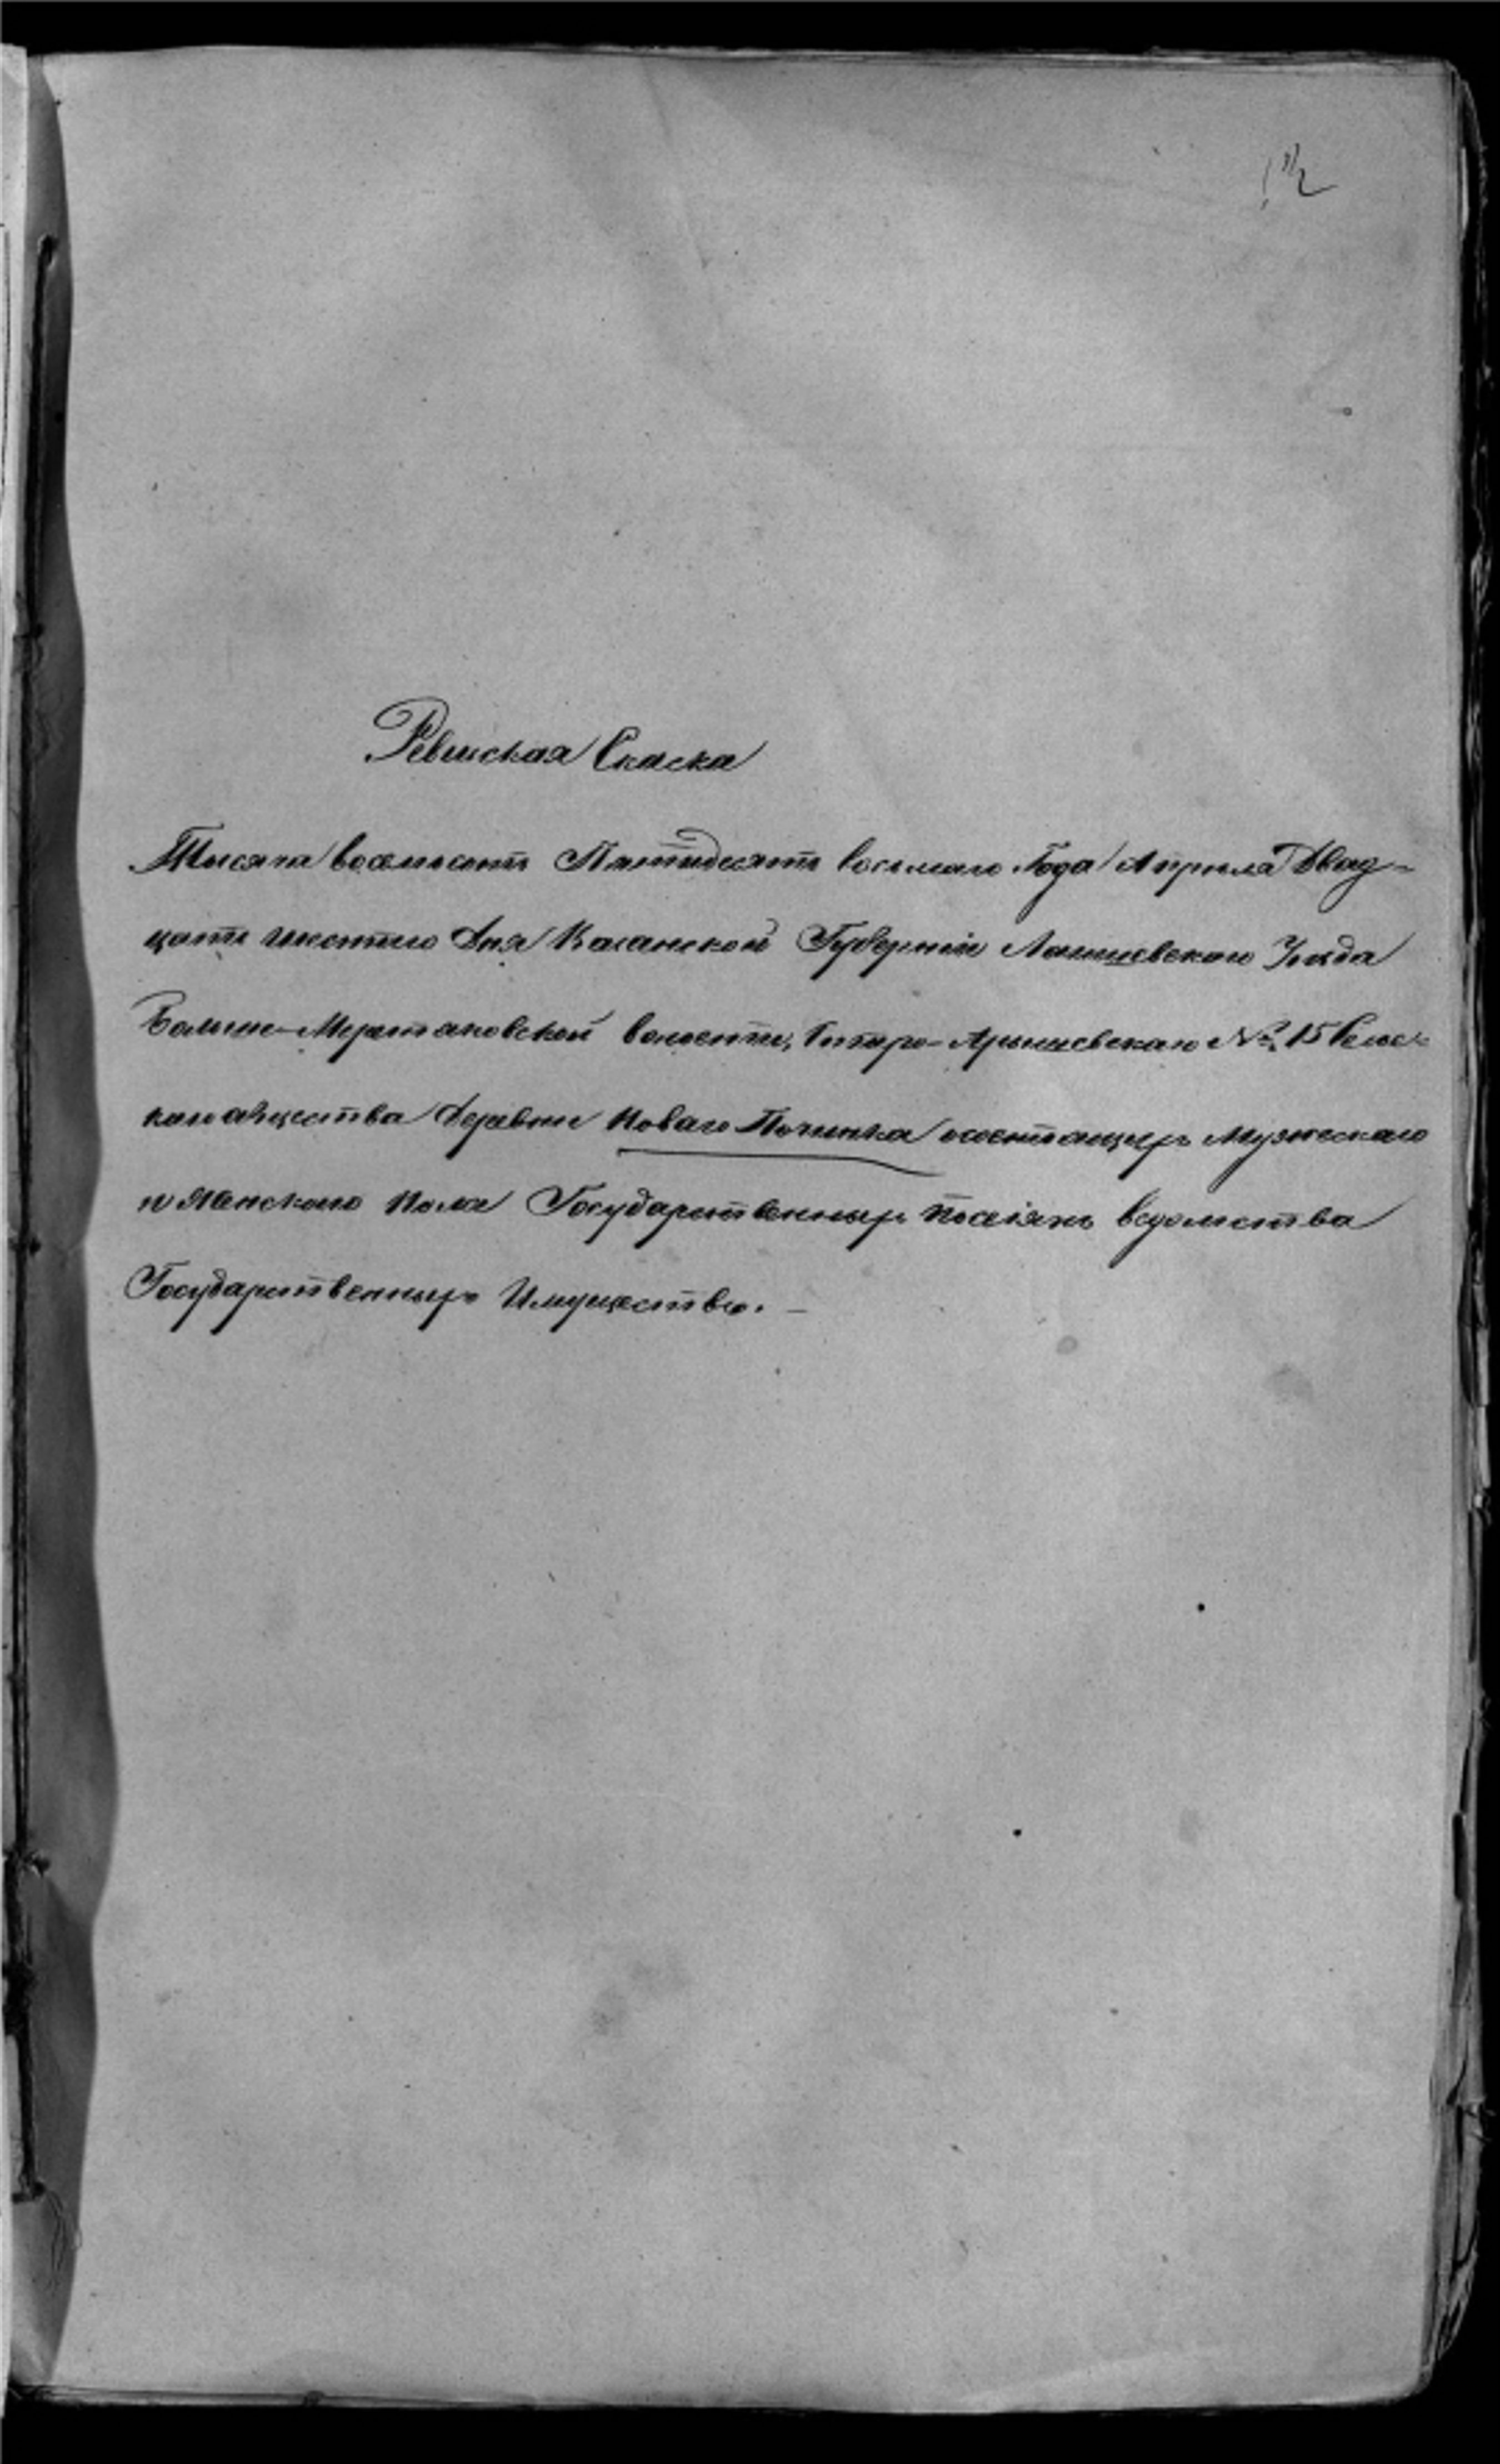 Ревиская Скаска
Тысяча восемьсотъ Пятидесятъ восьмаго Года Апрѣля Двад-
цать шестаго Дня Казанской Губерніи Лаишевскаго Уѣзда
Больше-Меретяковской волости, Старо-Арышевскаго № 15 Сельс-
каго общества Деревни Новаго Починка о состоящихъ Мужескаго
и Женскаго пола Государственныхъ поселянъ ведомства
Государственныхъ Имуществъ. —